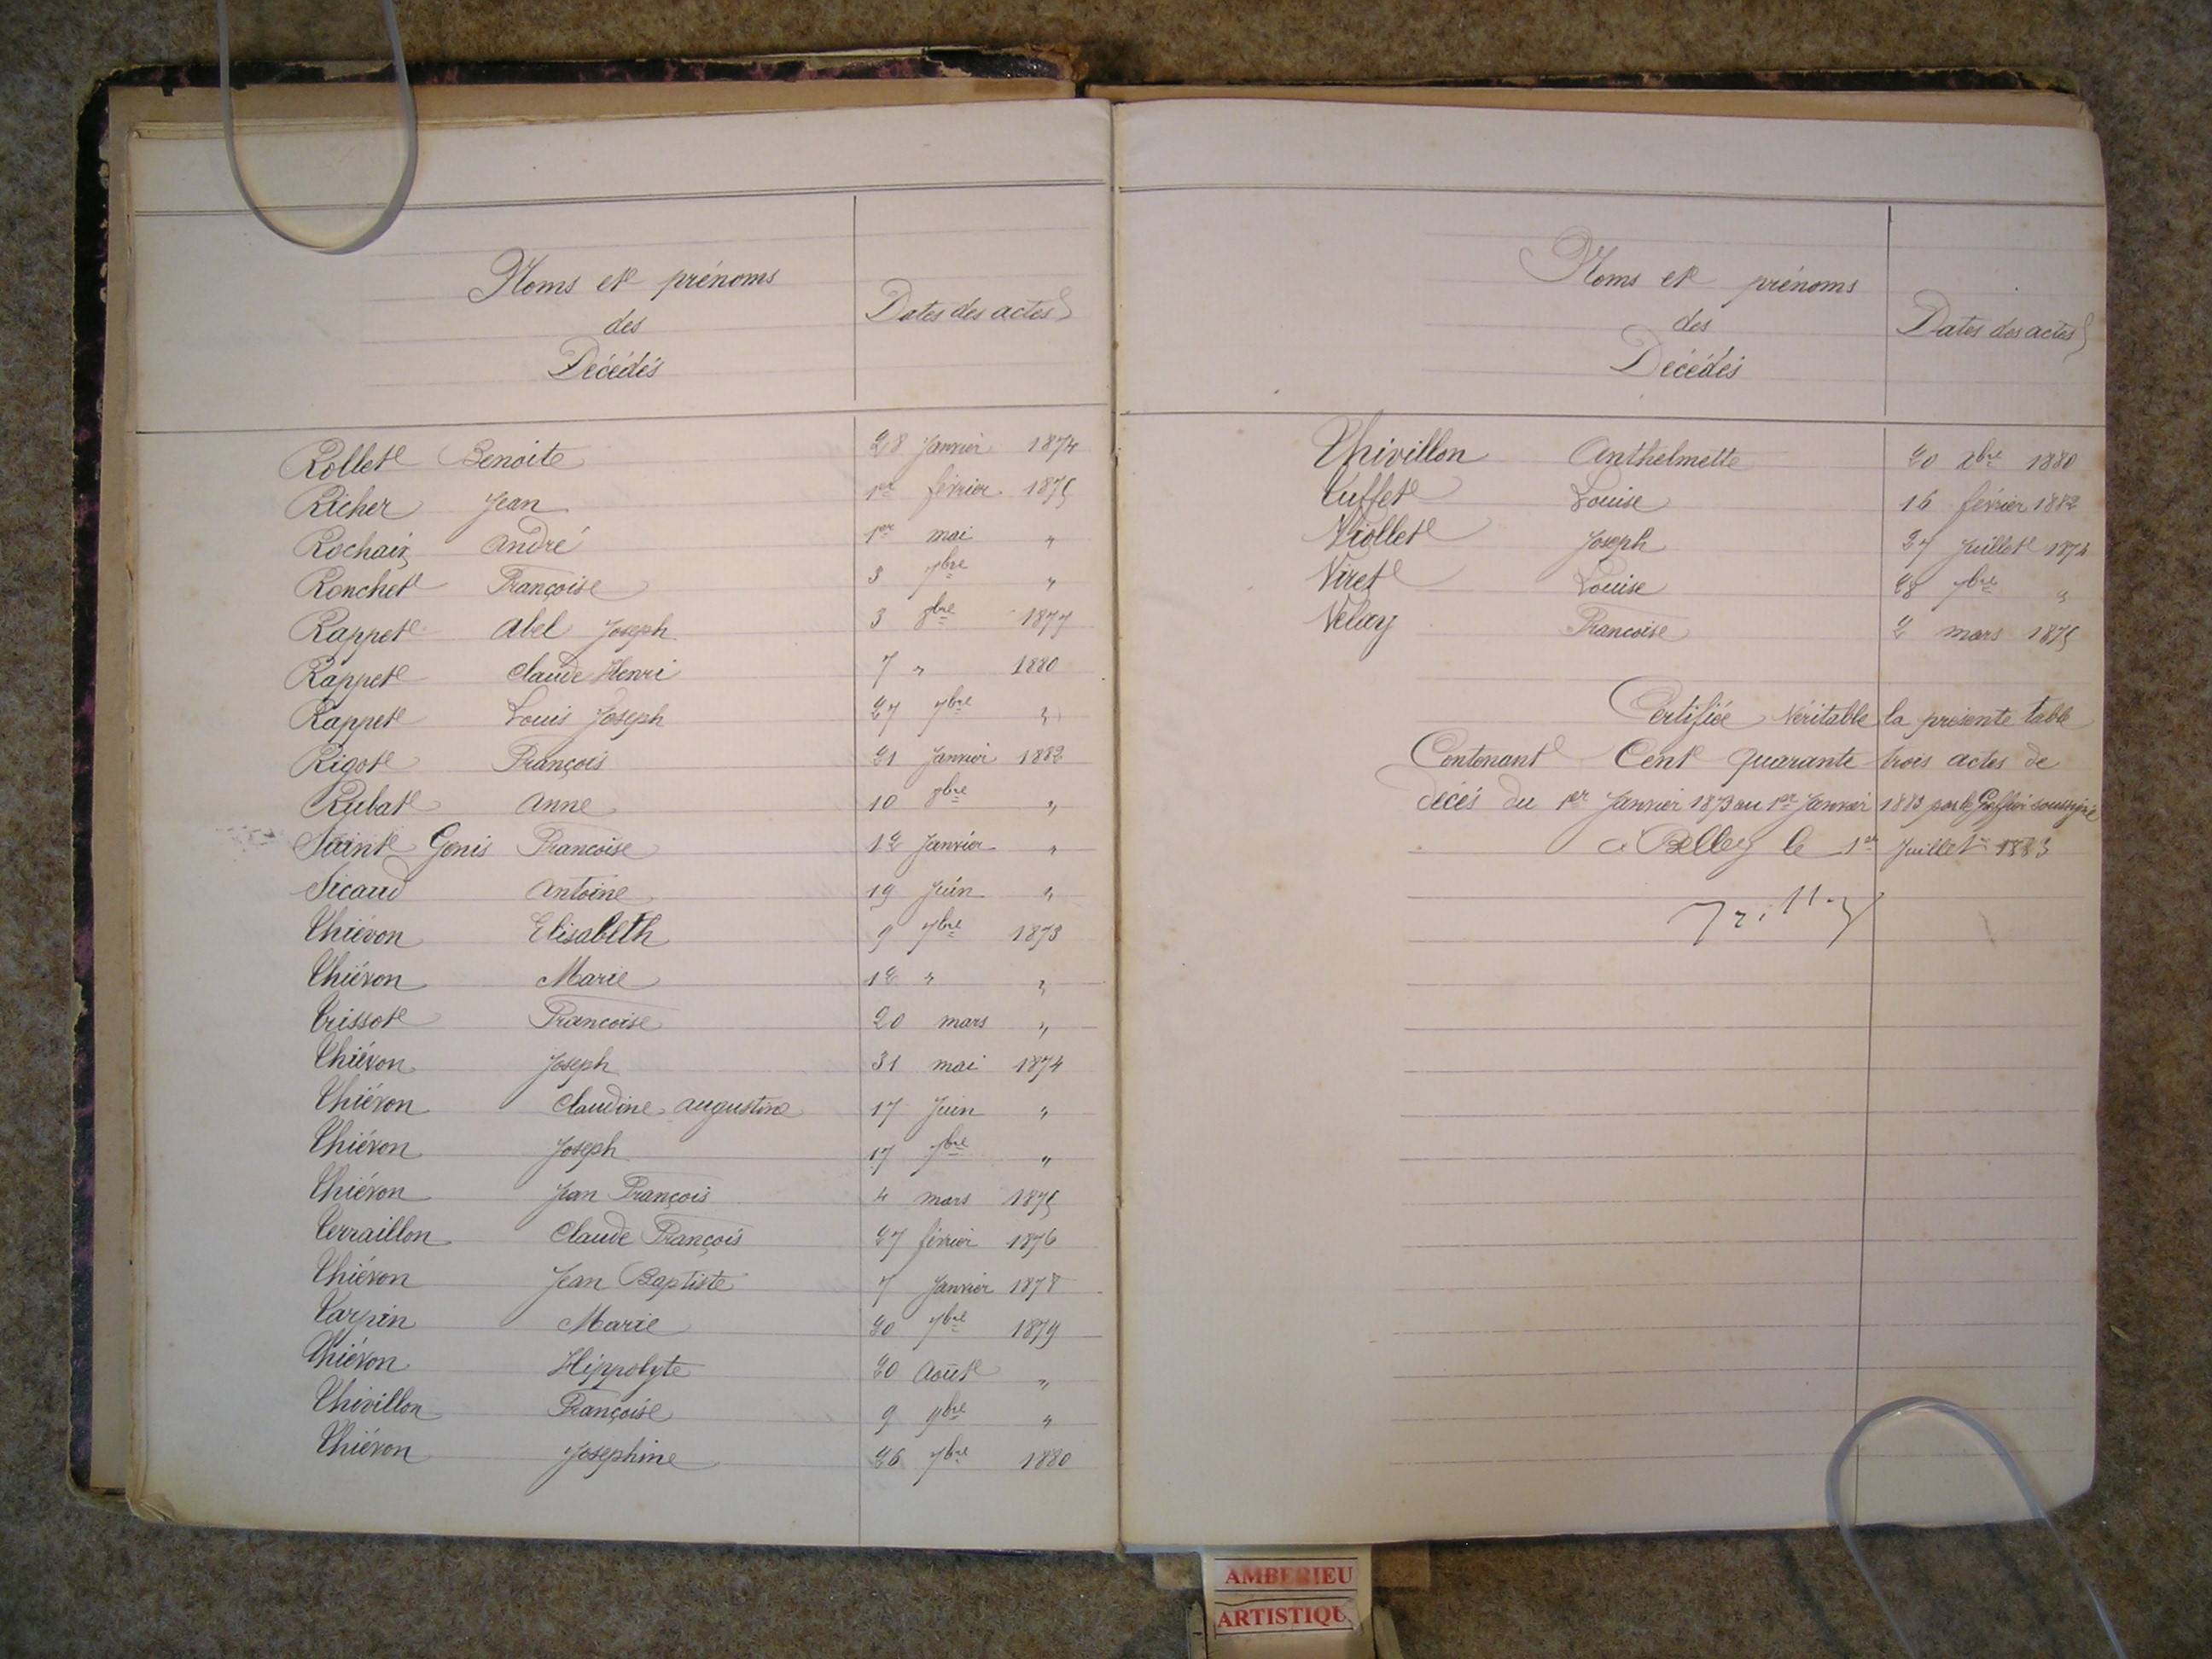 Noms et prénoms
des
Décédés
Dates des actes
Rollet Benoite 28 Janvier 1874
Richer Jean 1er février 1875
Rochaix André 1er mai "
Ronchet Françoise 3 7bre "
Rappet Abel Joseph 3 8bre 1877
Rappet Claude Henri 7 " 1880
Rappet Louis Joseph 27 7bre "
Rigot François 21 Janvier 1882
Rubat Anne 10 8bre "
Saint Genis Francoise 12 Janvier "
Sicaud Antoine 19 Juin "
Thiévon Elisabeth 9 7bre 1873
Thiévon Marie 12 " "
Trissot Francoise 20 mars "
Thiévon Joseph 31 mai 1874
Thiévon Claudine Augustine 17 Juin "
Thiévon Joseph 17 7bre "
Thiévon Jean François 4 mars 1875
Terraillon Claude François 27 février 1876
Thiévon Jean Baptiste 7 Janvier 1878
Tarpin Marie 20 7bre 1879
Thiévon Hippolyte 20 Août "
Thivillon Françoise 9 9bre "
Thiévon Joséphine 26 7bre 1880
Noms et prénoms
des
Décédés
Dates des actes
Thivillon Anthelmette 20 xbre 1880
Tuffet Louise 16 février 1882
Viollet Joseph 27 Juillet 1874
Viret Louise 28 7bre "
Velay Francoise 2 mars 1875
Certifiée Véritable la présente table
Contenant Cent quarante trois actes de
décès du 1er Janvier 1873 au 1er Janvier 1883 par le Greffier soussigné
à Belley le 1er Juillet 1883
AMBERIEU
ARTISTIQU